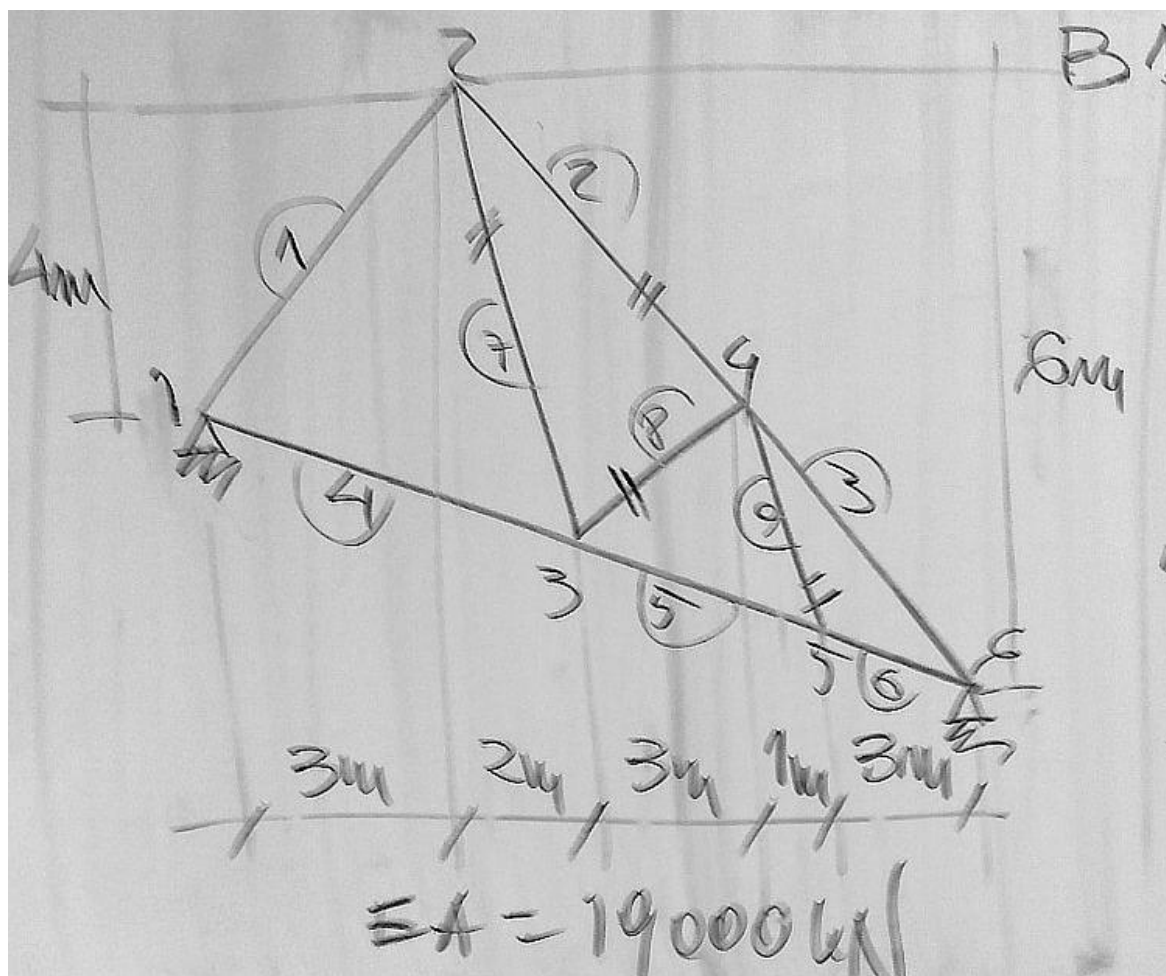 2
B
4m
2
1
7
4
6m
1
8
3
4
9
3
5
5
6
6
3m 2m 3m 1m 3m
EA = 19000 kN